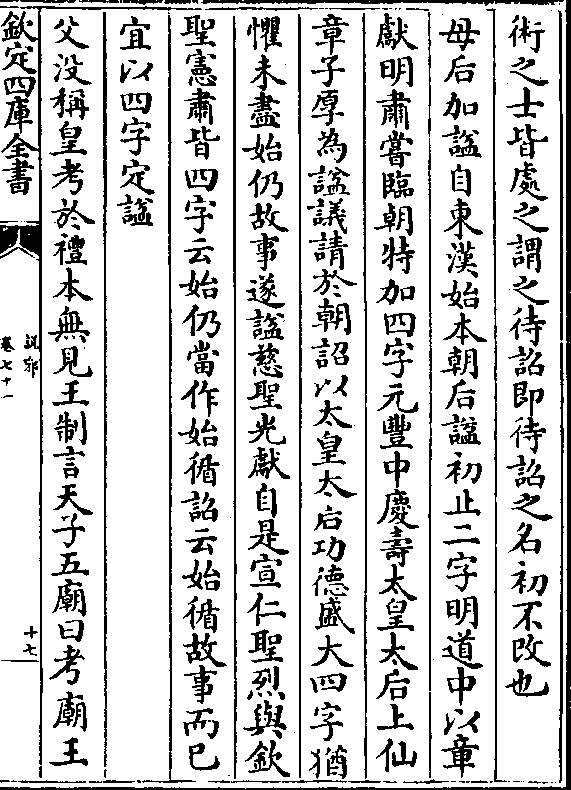 術之士皆處之謂之待詔即待詔之名初不改也
母后加諡自東漢始本朝后諡初止二字明道中以章
獻明肅嘗臨朝特加四字元豐中慶壽太皇太后上仙
章子厚為諡議請於朝詔以太皇太后功德盛大四字猶
懼未盡始仍故事遂諡慈聖光獻自是宣仁聖烈與欽
聖憲肅皆四字云始仍當作始循詔云始循故事而已
宜以四字定諡
父没稱皇考於禮本無見王制言天子五廟曰考廟王
欽定四庫全書
說郛
卷七十一
十七